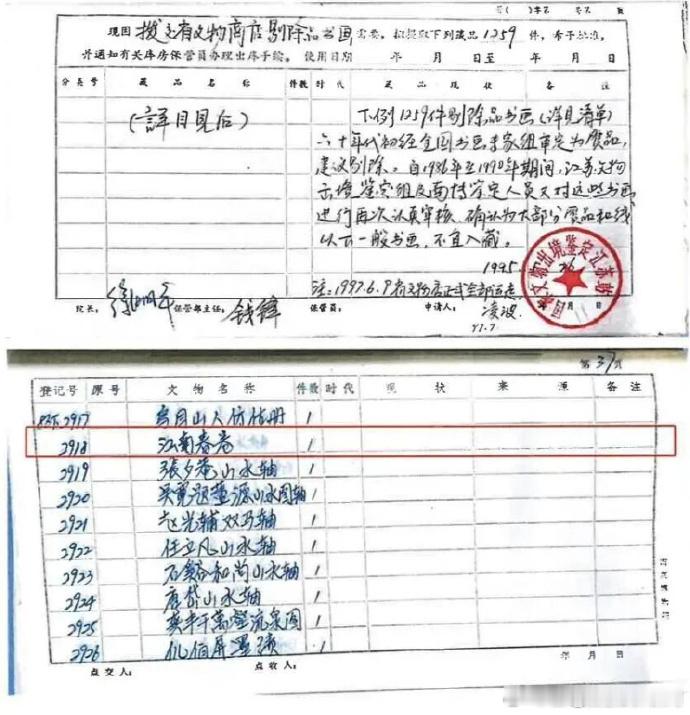 现因拨交省文物商店剔除品书画需要，拟提取下列藏品1259件，希予批准。
并通知有关库房保管员办理出库手续。使用日期 年 月 日至 年 月 日
分类号 藏品名称 件数 时代 藏品现状 备注
(詳目見后)
下列1259件剔除品书画(详见清单)
六十年代初经全国书画专家组审定为赝品，
建议剔除。自1986年至1990年期间，江苏文物
出境鉴定组及南博鉴定人员又对这些书画
进行再次认真审核，确认为大部分赝品和线
以下一般书画，不宜入藏。
1995
注:1997.6.9省文物店正式全部
院长: 保管部主任: 钱锋 保管员: 申请人: 凌波 年 月 日
97.7.
国家文物出境鉴定江苏站
第37页
登记号 原号 文物名称 件数 时代 现状 来源 备注
2917 乌目山人仿古册 1
2918 江南春卷 1
2919 張夕菴山水轴 1
2920 山水图轴 1
2921 赵光辅双马轴 1
2922 任立凡山水轴 1
2923 石谿和尚山水轴 1
2924 唐岱山水轴 1
2925 奚丰千萬壑流泉图 1
2926 伊伯屏墨蹟 1
点交人: 点收人: 年 月 日